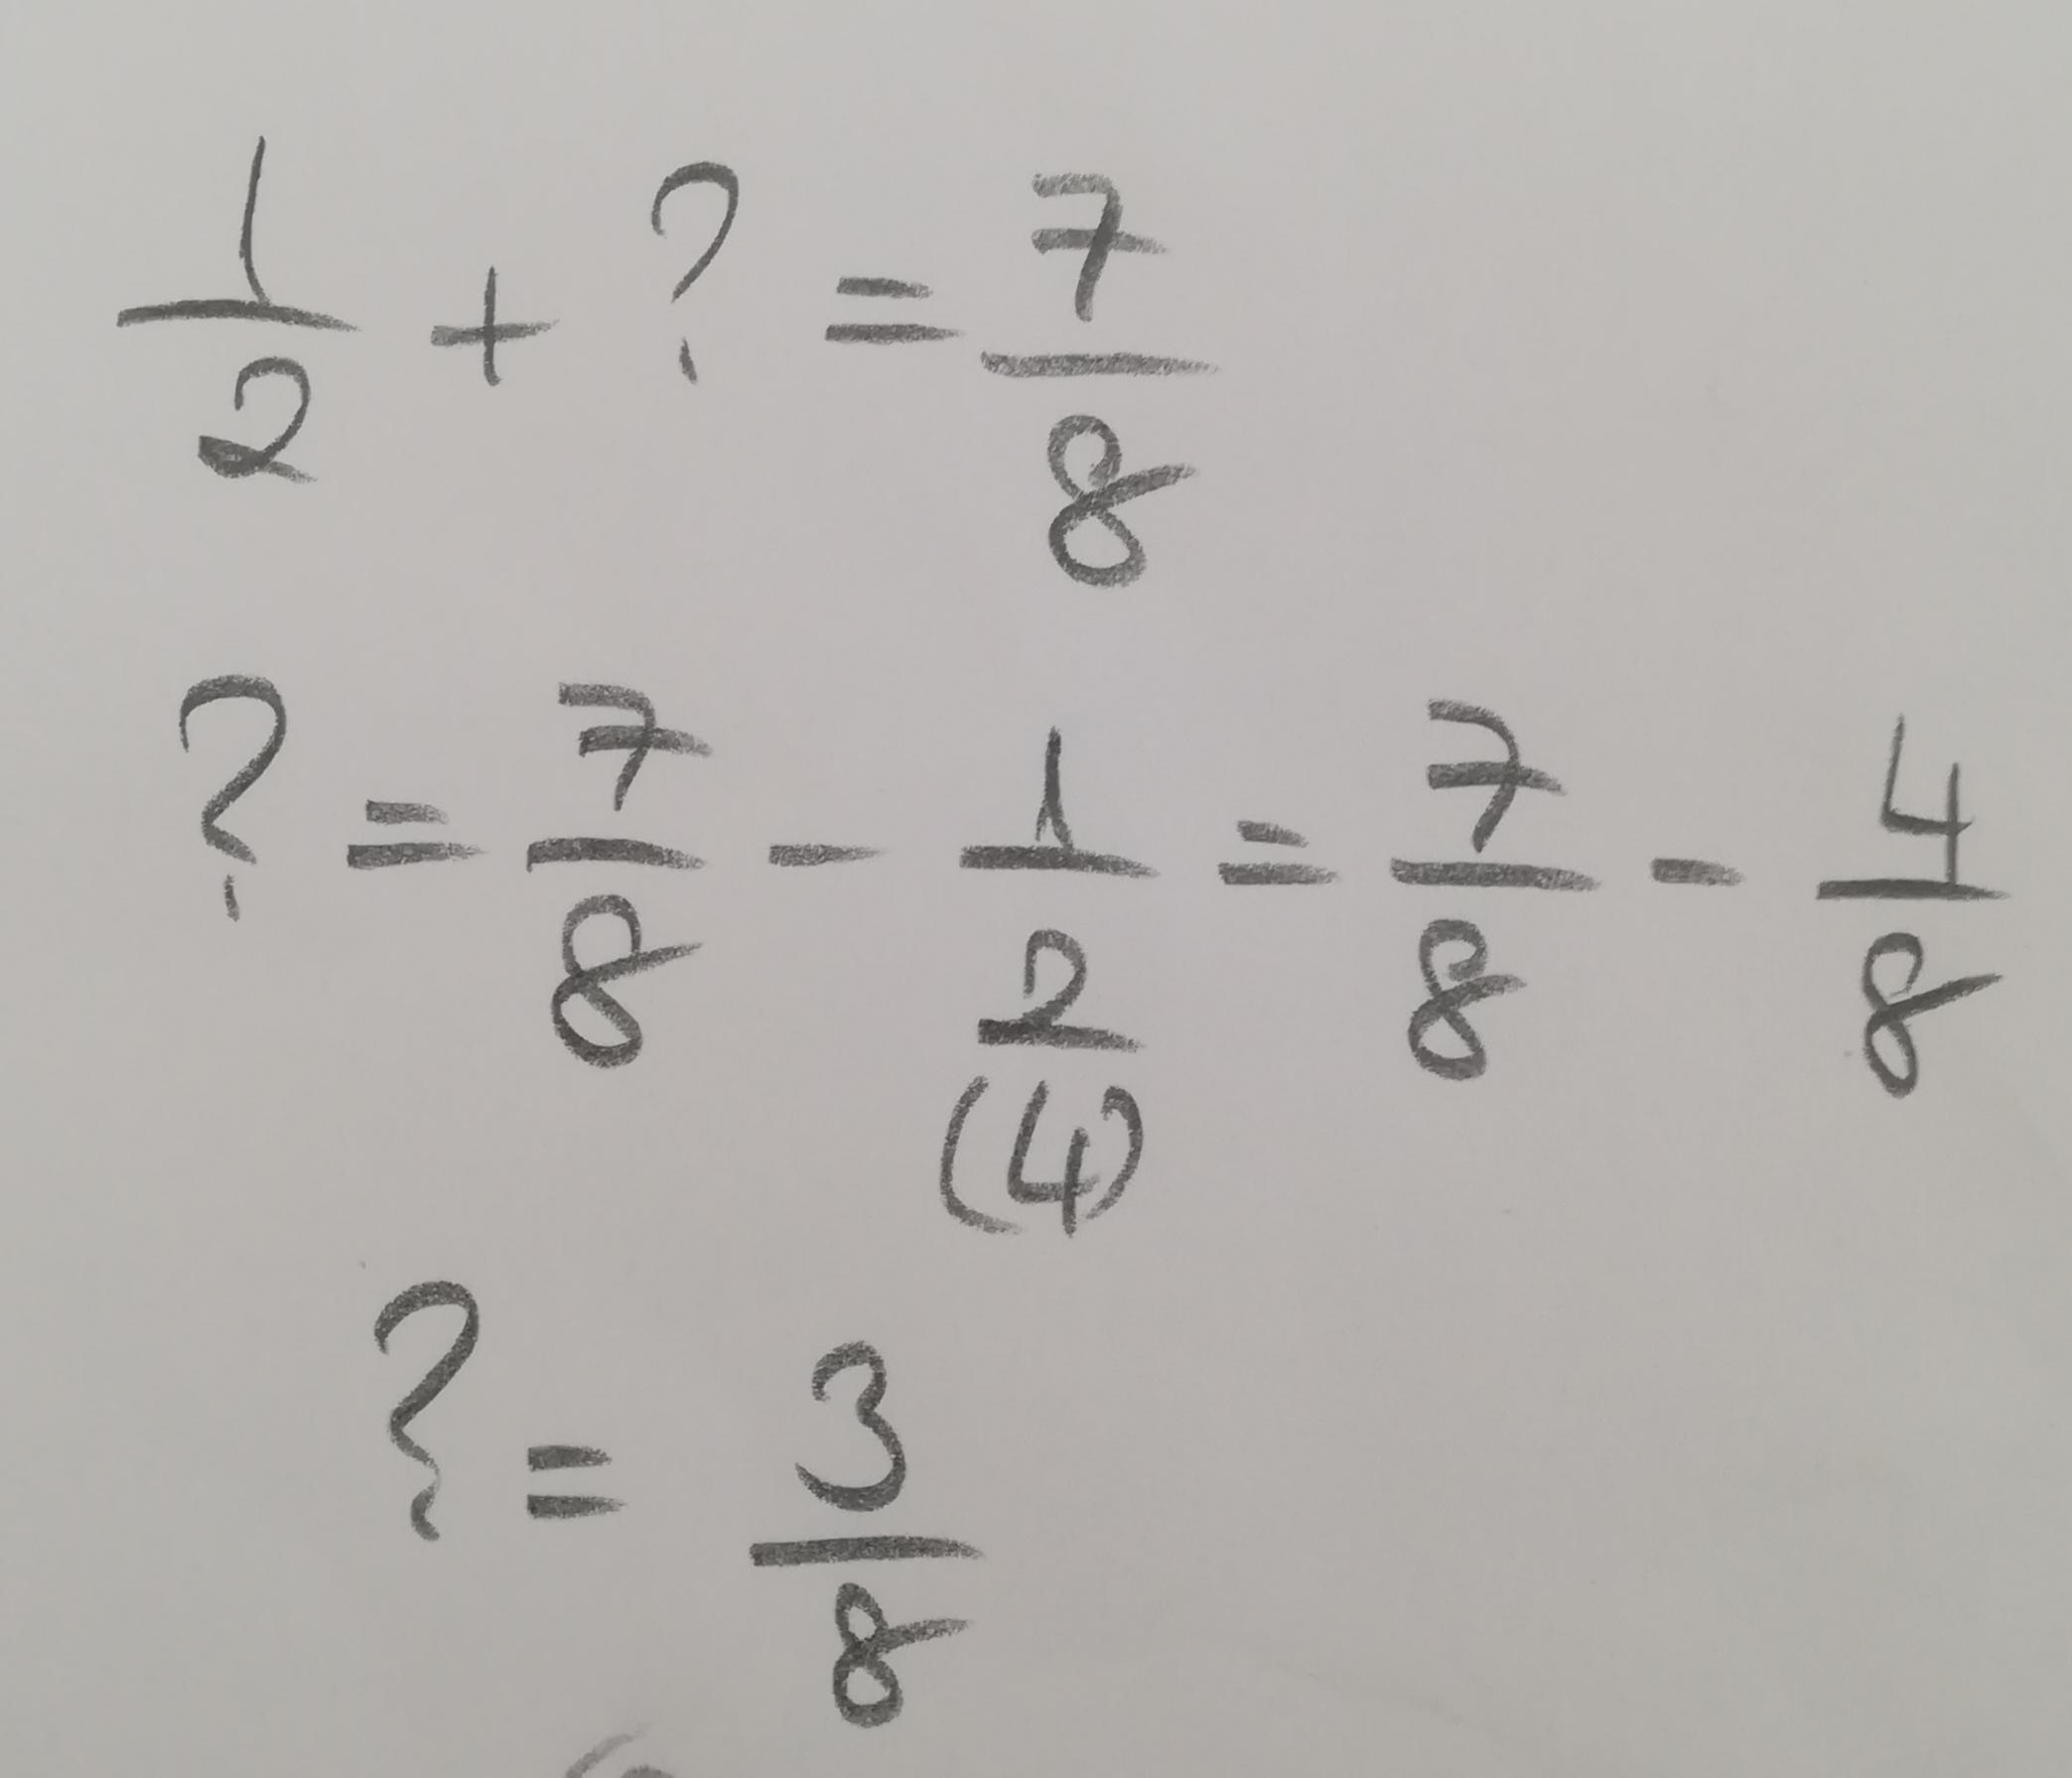 1/2 + ? = 7/8
? = 7/8 - 1/2 = 7/8 - 4/8
(4)
? = 3/8